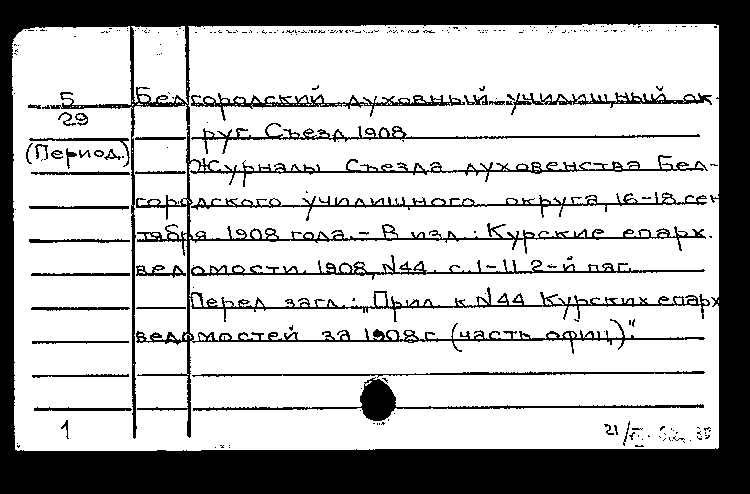 Б
29
(Период.)
Белгородский духовный училищный ок-
руг. Съезд. 1908.
Журналы съезда духовенства Бел-
городского училищного округа, 16-18 сен-
тября 1908 года. - В изд.: Курские епарх.
ведомости. 1908, N44. с. 1-11 2-й паг.
Перед загл.: „Прил. к N44 Курских епарх.
ведомостей за 1908 г. (часть офиц.)".
1
21/